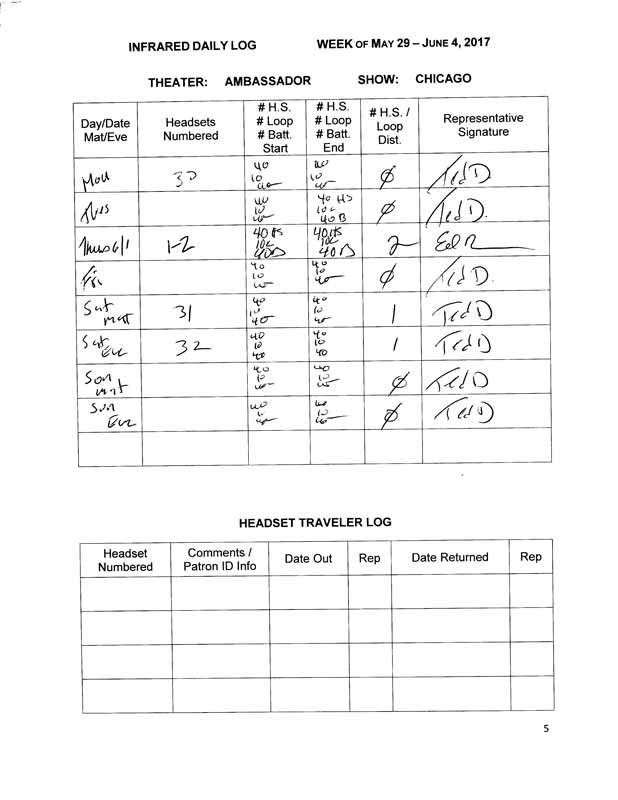 INFRARED DAILY LOG WEEK OF MAY 29 – JUNE 4, 2017
THEATER: AMBASSADOR SHOW: CHICAGO
Day/Date Mat/Eve Headsets Numbered # H.S. # Loop # Batt. Start # H.S. # Loop # Batt. End # H.S. / Loop Dist. Representative Signature
Mon 40 10 40 40 10 40 Ø Ted D
40 10 40 40 HS 10L 40B Ø Ted D.
Thurs 6/1 1-2 40HS 10L 40B 40HS 10L 40B 2 Ed R
Fri 40 10 40 40 10 40 Ø Ted D.
Sat mat 31 40 10 40 40 10 40 1 Ted D
Sat Eve 32 40 10 40 40 10 40 1 Ted D
Sun mat 40 10 40 40 10 40 Ø Ted D
Sun Eve 40 40 40 10 40 Ø Ted D
HEADSET TRAVELER LOG
Headset Numbered Comments / Patron ID Info Date Out Rep Date Returned Rep
5